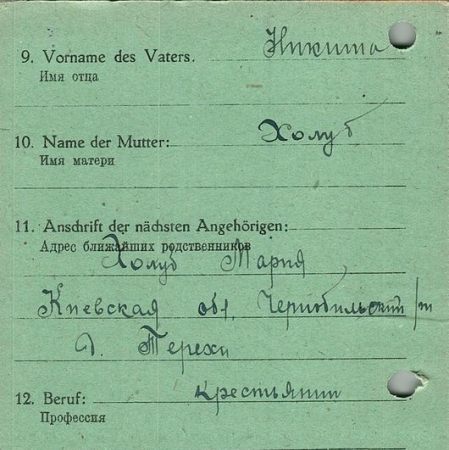 9. Vorname des Vaters. Никита
Имя отца
10. Name der Mutter: Холуб
Имя матери
11. Anschrift der nächsten Angehörigen:
Адрес ближайших родственников
Холуб Мария
Киевская обл. Чернобильский
д. Терехи
12. Beruf: крестьянин
Профессия